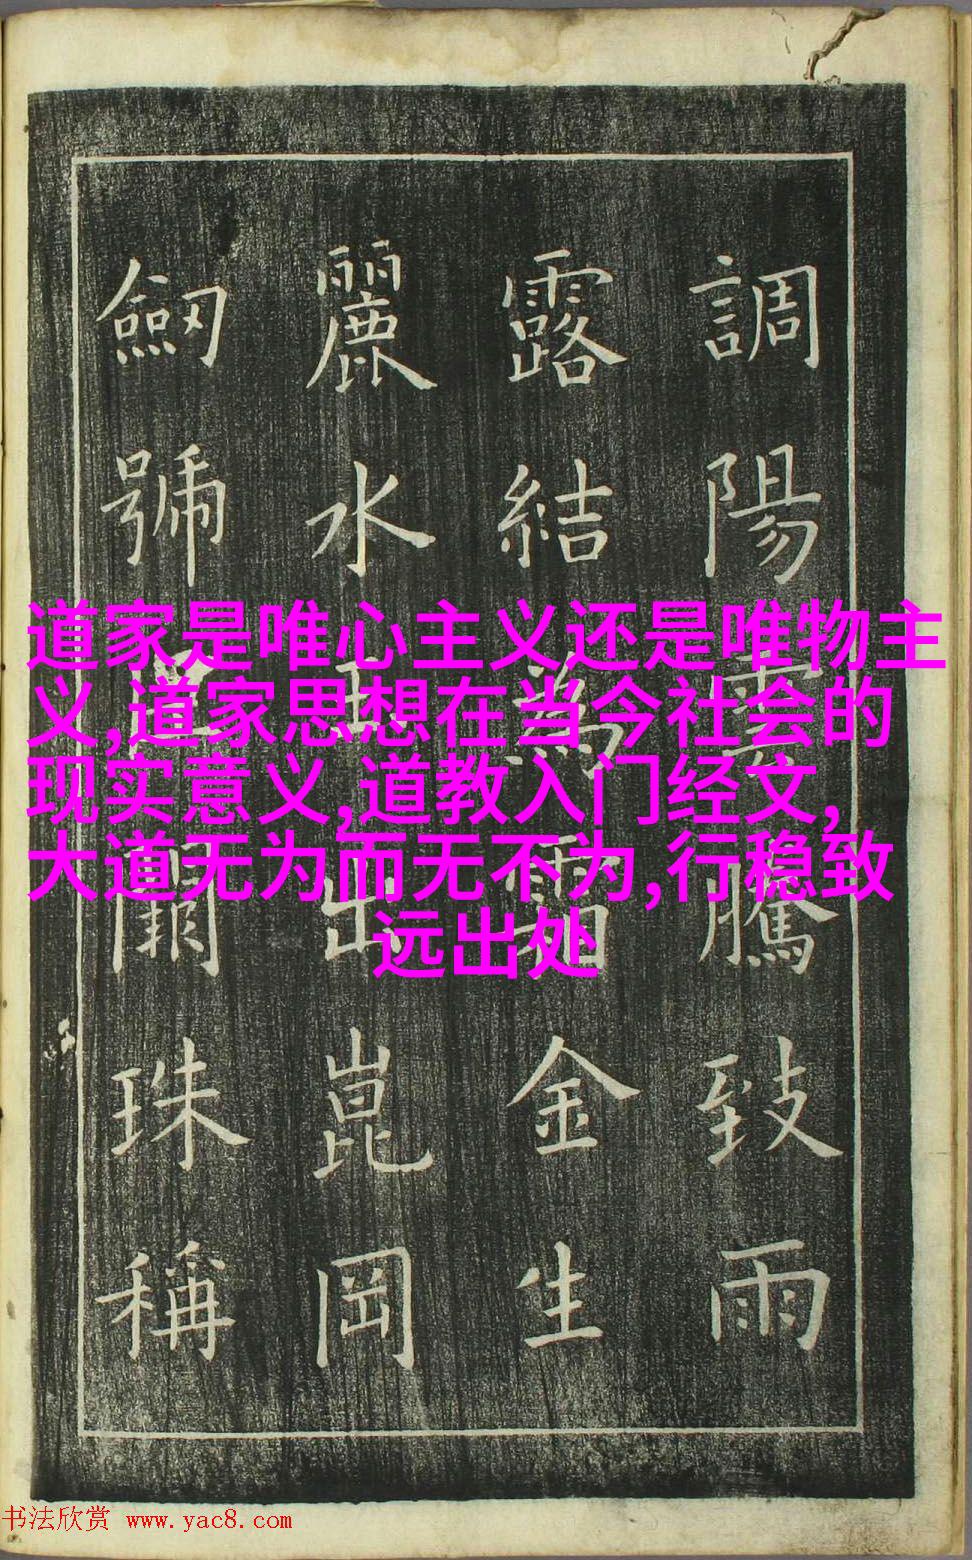 調陽雲騰致雨
露結爲霜金生
麗水玉出崑岡
劒號巨闕珠稱
道家是唯心主义还是唯物主
义,道家思想在当今社会的
现实意义,道教入门经文,
大道无为而无不为,行稳致
远出处
书法欣赏 www.yac8.com